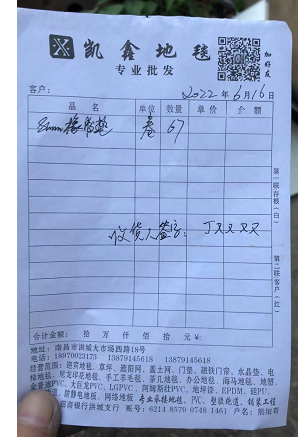 凯鑫地毯
专业批发
加好友
客户：
2022年6月16日
品名 单位 数量 单价 金额
8mm橡胶垫 卷 67
收货人签字：丁又又又
第一联存根（白）
第二联客户（红）
合计金额： 拾 万 仟 佰 拾 元 ¥：
地址：南昌市洪城大市场西路18号
电话：18970023173 13879145618 13879145618
经营范围：迎宾地毯、草坪、遮阳网、盖土网、门垫、磁铁门帘、水晶垫、电
绘地毯、尼龙印花地毯、手工羊毛毯、茶几地毯、办公地毯、海马地毯、地塑、
PVC、大巨龙PVC、LGPVC、阿姆斯壮PVC、地坪漆、EPDM、硅PU、
防静电地板、网络地板 专业承接地毯、PVC、塑胶跑道、铺装工程
招商银行洪城支行 账号：6214 8579 0748 1461 户名：熊